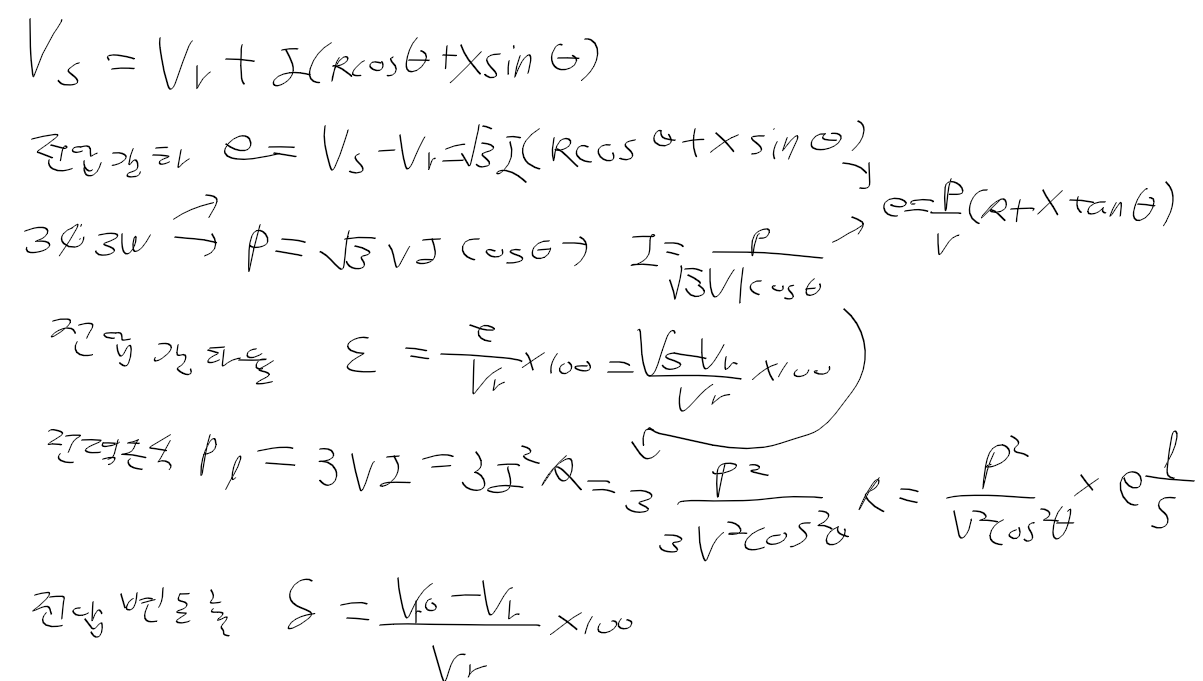 Vs = Vr + I(Rcosθ+Xsinθ)
전압강하 e = Vs - Vr = √3 I(Rcosθ+Xsinθ)
e = P/V (R+Xtanθ)
3¢3W → P = √3 VI cosθ → I = P/(√3V|cosθ)
전압강하율 ε = e/Vr ×100 = (Vs-Vr)/Vr ×100
전력손실 Pl = 3VI = 3I²R = 3 P²/(3V²cos²θ) R = P²/(V²cos²θ) × ρ l/S
전압변동률 δ = (Vro - Vr)/Vr ×100